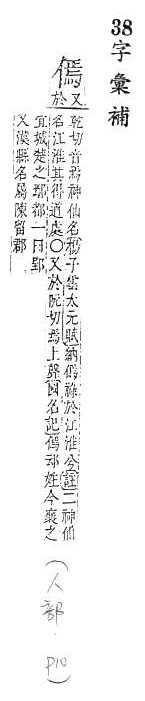 38字彙補
傿
又於
乾切音焉神仙名揚子雲太元賦納傿祿於江淮兮註二神仙
名江淮其得道處○又於阮切焉上聲國名記傿姓今襄之
宜城楚之鄢都一曰郾
又漢縣名屬陳留郡
(人部.P10)